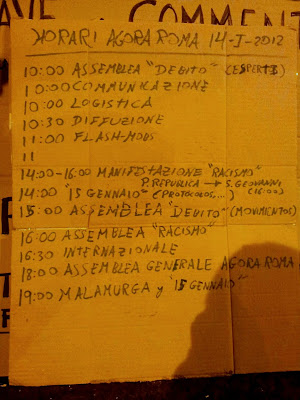 COMMENT
HORARI AGORA ROMA 14-I-2012
10:00 ASSEMBLEA "DEBITO" (ESPERTI)
10:00 COMMUNICAZIONE
10:00 LOGISTICA
10:30 DIFFUZIONE
11:00 FLASH-MOBS
11
14:00-16:00 MANIFSTAZIONE "RACISMO"
P. REPUBLICA → S. GEOVANNI
14:00 "15 GENNAIO" (PROTOCOLOS,...) (16:00)
15:00 ASSEMBLEA "DEBITO" (MOVIMIENTOS)
16:00 ASSEMBLEA "RACISMO"
16:30 INTERNAZIONALE
18:00 ASSEMBLEA GENERALE AGORA ROMA
19:00 MALAMURGA y "15 GENNAIO"